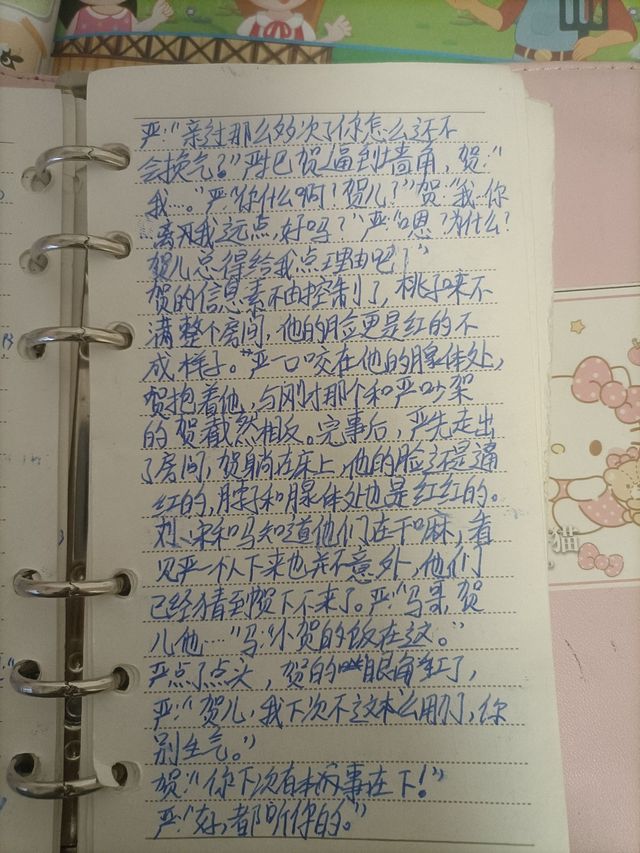 严:“亲过那么多次了你怎么还不
会换气?”严把贺逼到墙角,贺:“
我…。”严“你什么啊?贺儿?”贺:“我.你
离我远点,好吗?”严:“嗯?为什么?
贺儿总得给我点理由吧!”
贺的信息素不由控制了,桃子味不
满整个房间,他的脸更是红的不
成样子。“严一口咬在他的腺体处,
贺抱着他,与刚才那个和严吵架
的贺截然相反。完事后,严先走出
了房间,贺躺在床上,他的脸还是通
红的,脖和腺体处也是红红的。
刘、宋和马知道他们在干嘛,看
见严一个人下来也并不意外,他们
已经猜到贺下不来了。严:“马哥,贺
儿他…”马:“小贺的饭在这。”
严点了点头,贺的眼角红了,
严:“贺儿,我下次不这么用力,你
别生气。”
贺:“你下次有本事在下!”
严:“好,都听你的。”
猫